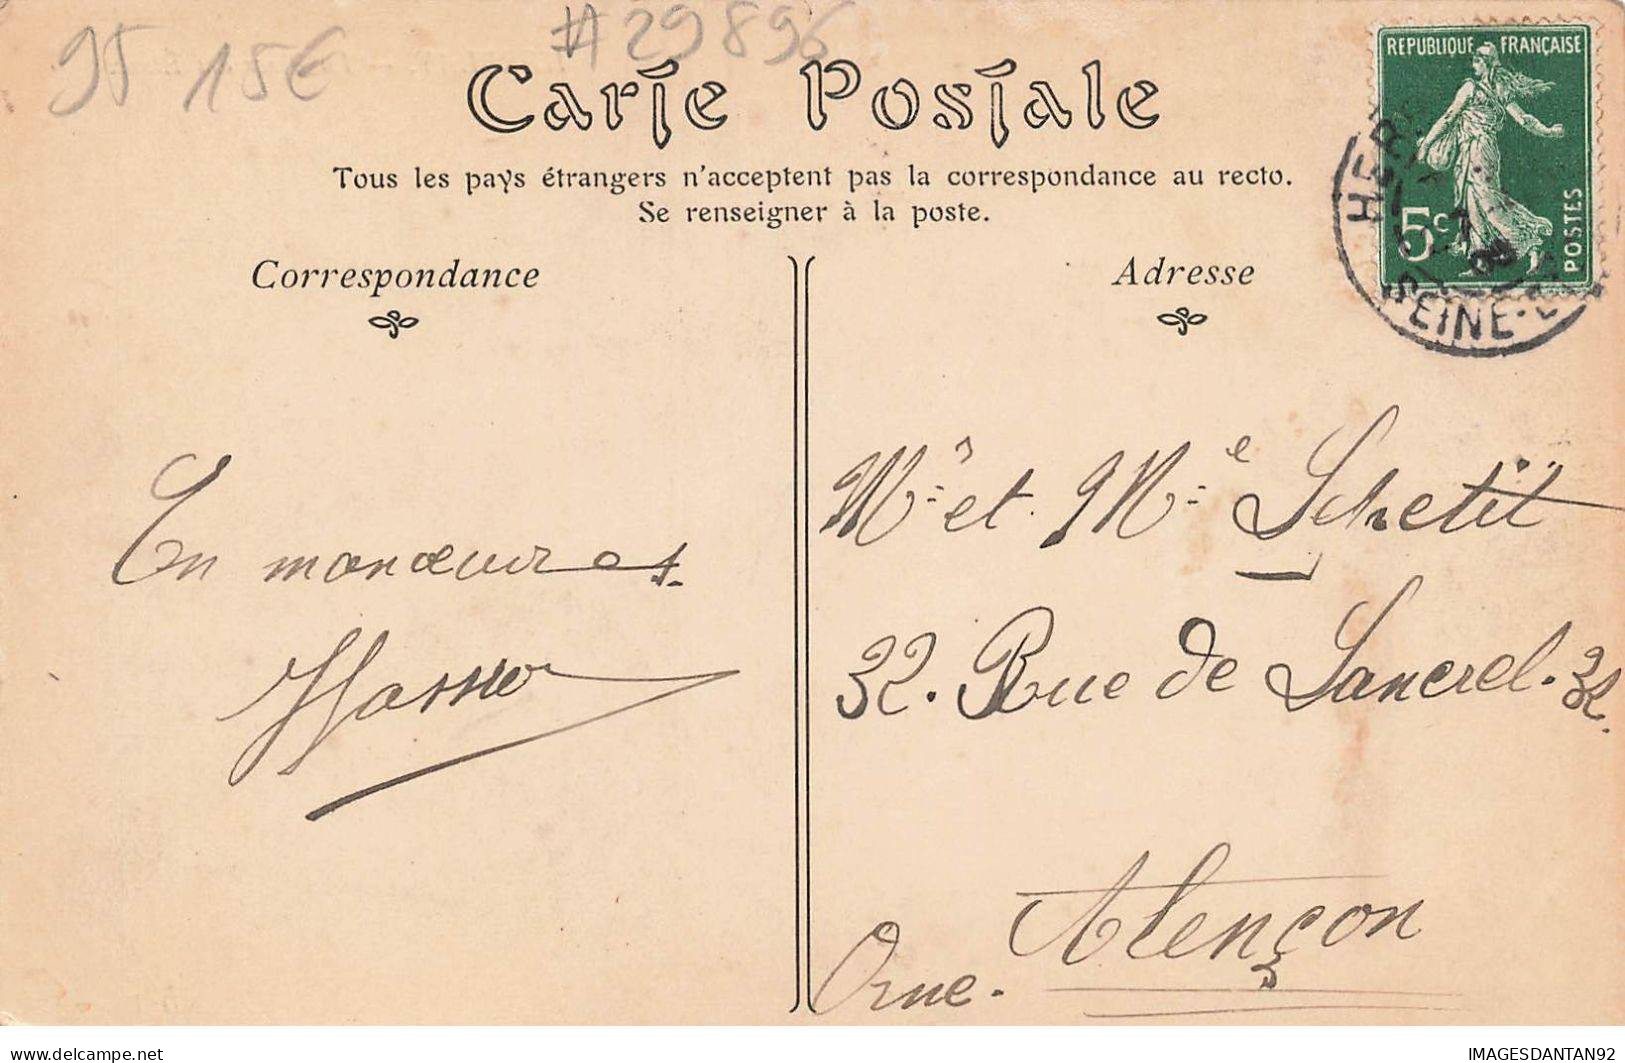 95 15€ #29896
Carte Postale
Tous les pays étrangers n'acceptent pas la correspondance au recto.
Se renseigner à la poste.
Correspondance
Adresse
REPUBLIQUE FRANÇAISE
5c
POSTES
SEINE
En manœuvres.
Mr et Me Schetit
32. Rue de Lancrel. 32.
Alençon
Orne.
www.delcampe.net
IMAGESDANTAN92